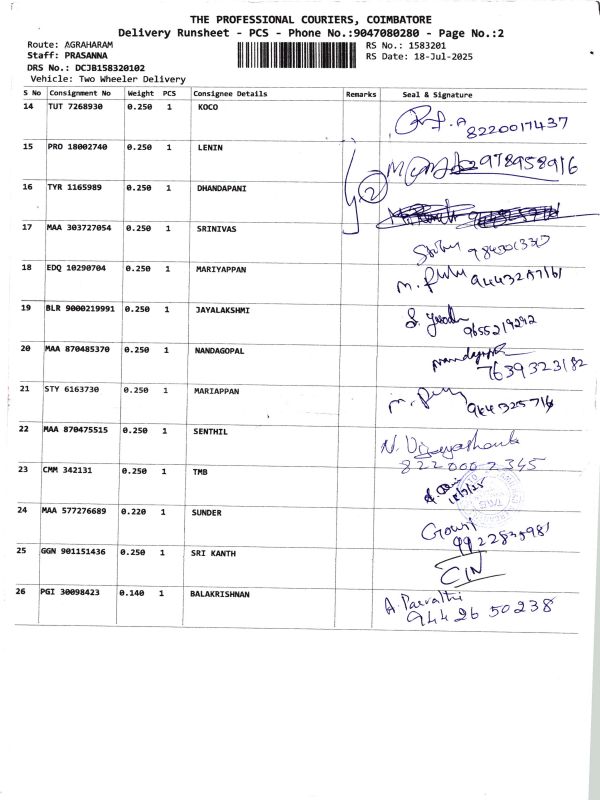 THE PROFESSIONAL COURIERS, COIMBATORE
Delivery Runsheet - PCS - Phone No.:9047080280 - Page No.:2
Route: AGRAHARAM RS No.: 1583201
Staff: PRASANNA RS Date: 18-Jul-2025
DRS No.: DCJB158320102
Vehicle: Two Wheeler Delivery
S No Consignment No Weight PCS Consignee Details Remarks Seal & Signature
14 TUT 7268930 0.250 1 KOCO
8220017437
15 PRO 18002740 0.250 1 LENIN
2
978958916
16 TYR 1165989 0.250 1 DHANDAPANI
17 MAA 303727054 0.250 1 SRINIVAS
18 EDQ 10290704 0.250 1 MARIYAPPAN
m.
19 BLR 9000219991 0.250 1 JAYALAKSHMI
9655219292
20 MAA 870485370 0.250 1 NANDAGOPAL
7639323182
21 STY 6163730 0.250 1 MARIAPPAN
m.
22 MAA 870475515 0.250 1 SENTHIL
8220002345
23 CMM 342131 0.250 1 TMB
18/7/25
24 MAA 577276689 0.220 1 SUNDER
Gowri
9922835981
25 GGN 901151436 0.250 1 SRI KANTH
26 PGI 30098423 0.140 1 BALAKRISHNAN
A. Parvathi
94426 50238